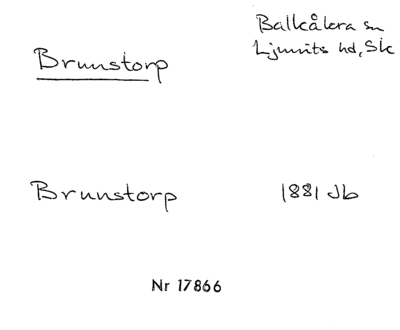 Balkåkra sn
Ljunits hd, Sk
Brunstorp
Brunstorp 1881 Jb
Nr 17866